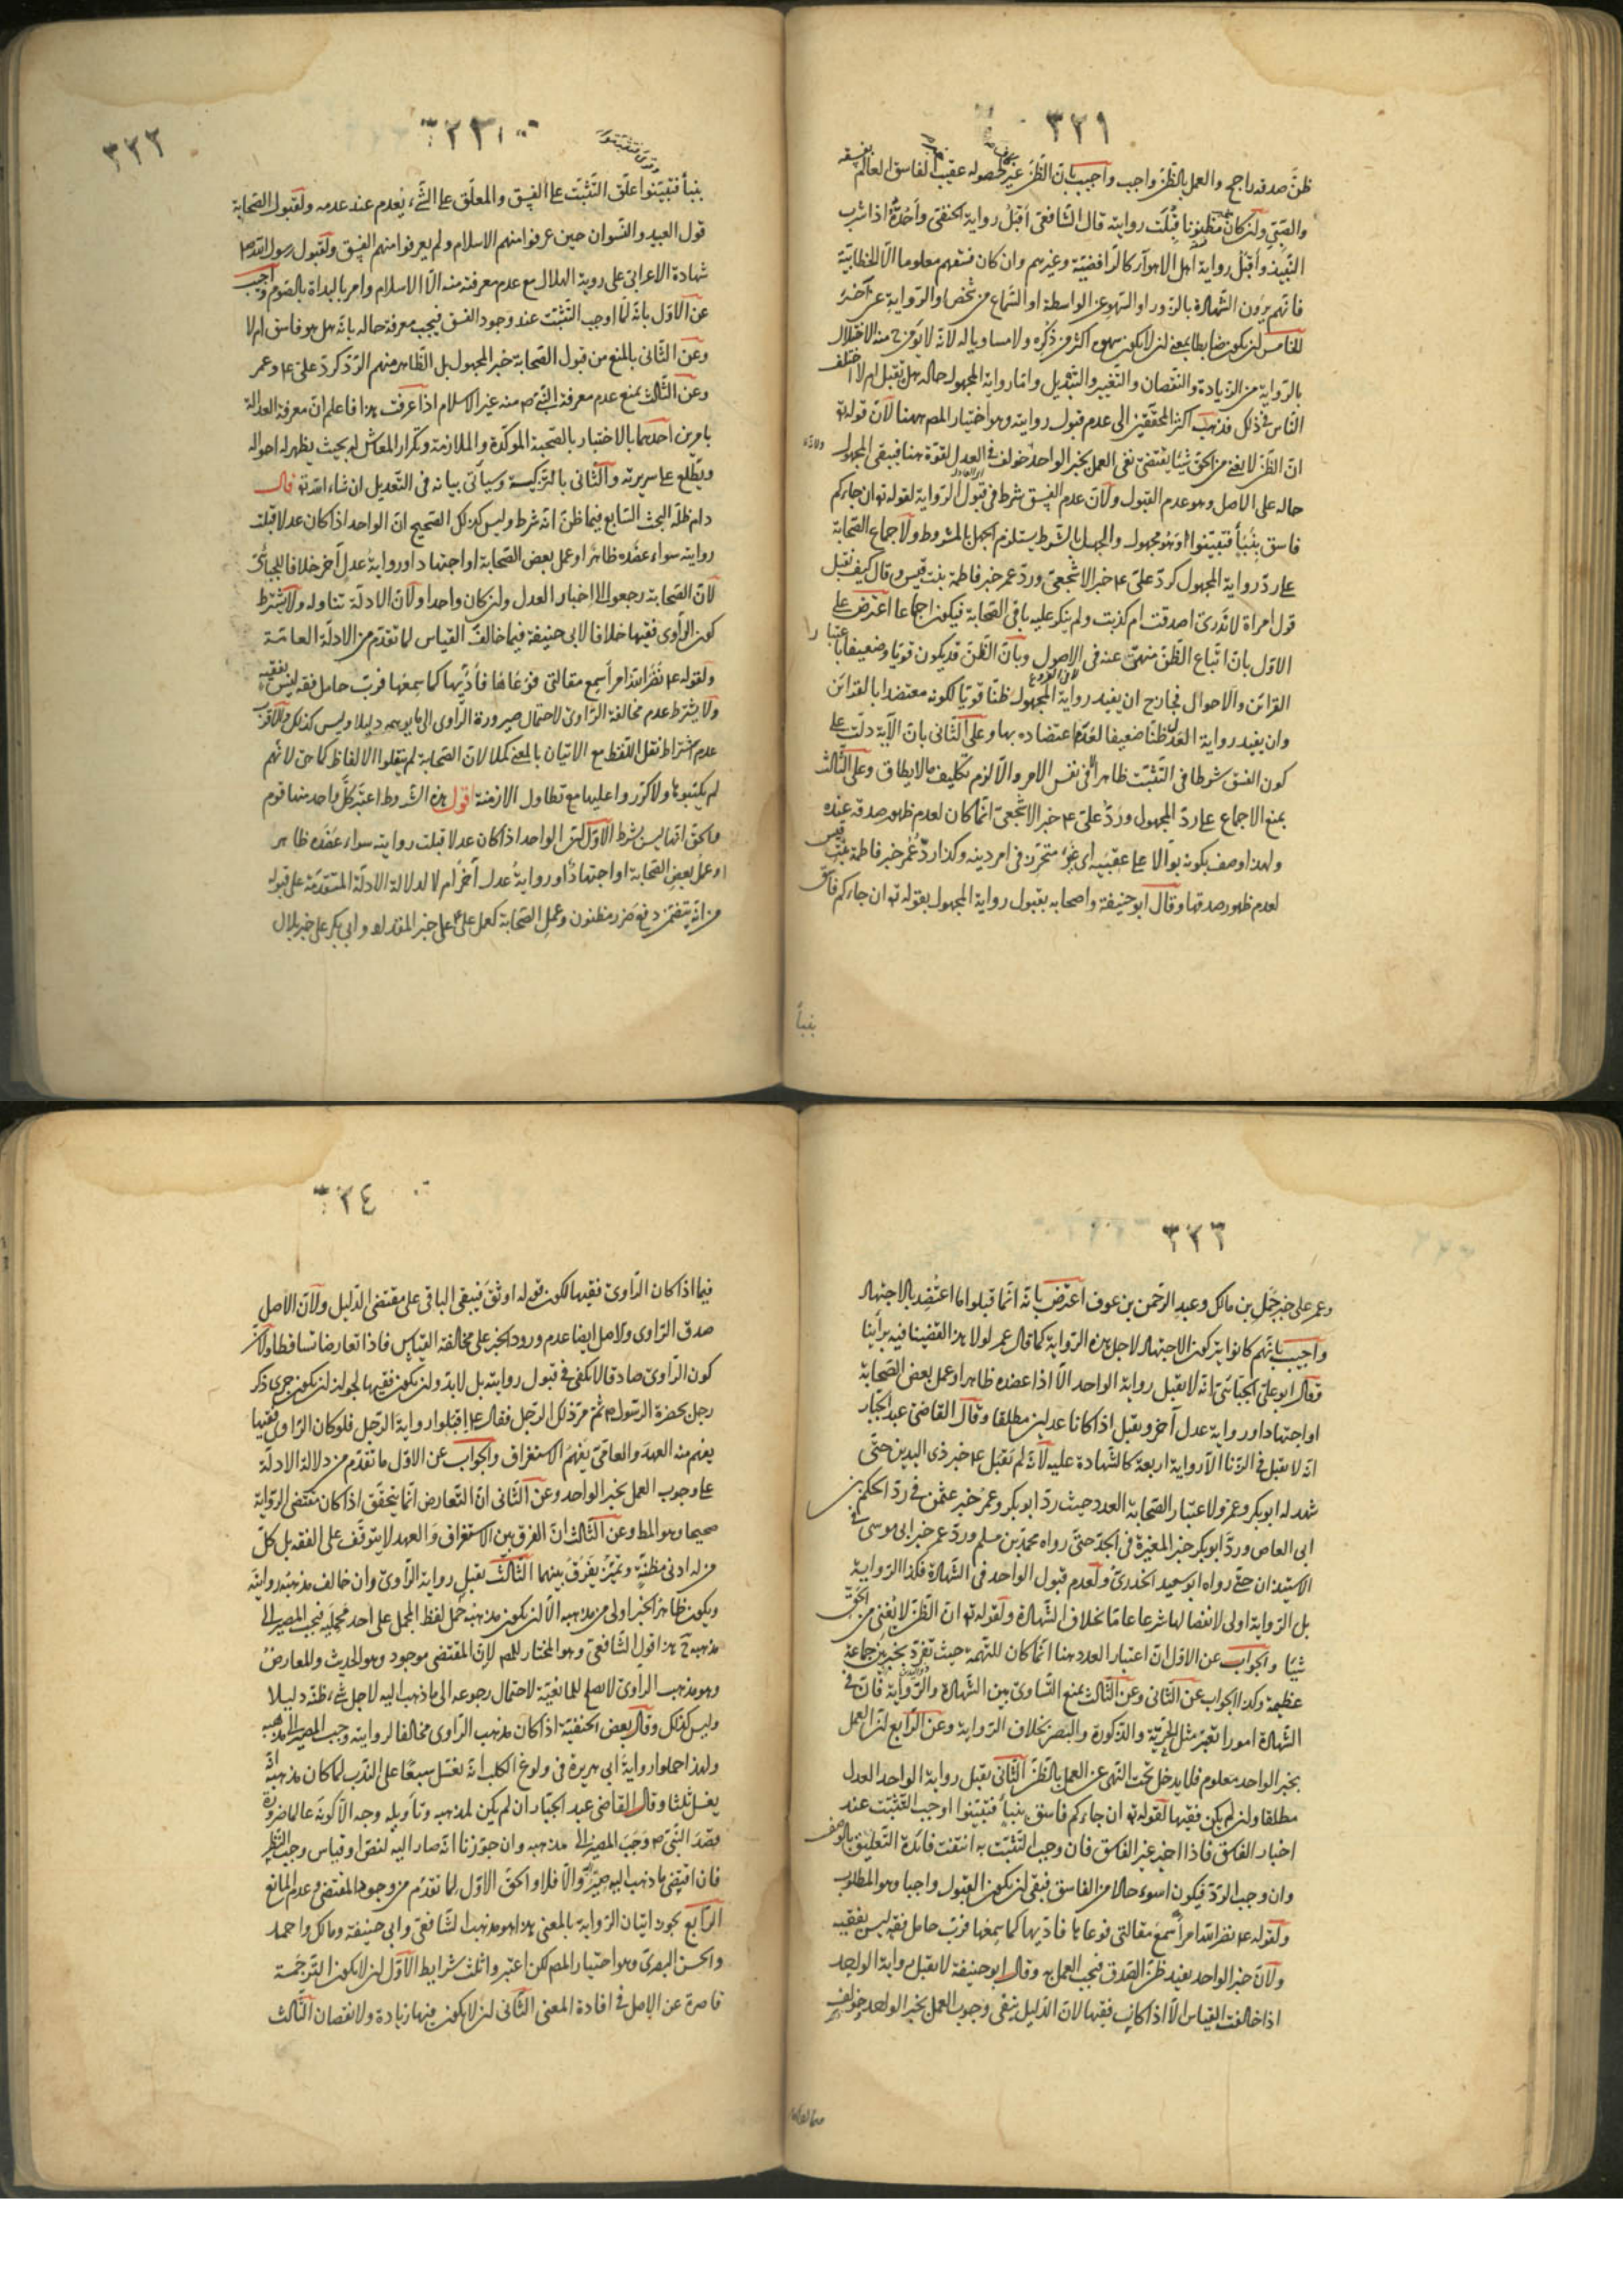 ٣٢١
ظنّ صدقه راجح والعمل بالظن واجب واجيب بان الظن غير حصوله عقيب الفاسق العالم بفسقه
والصبي ولئن كان مظنونا قبلت روايته قال الشافعي اقبل رواية الحنفي وأحُدّه اذا شرب
النبيذ وأقبل رواية اهل الاهواء كالرافضية وغيرهم وان كان فسقهم معلوما الا الخطابية
فانهم يرون الشهادة بالزور او السهو عن الواسطة او السماع من شخص والرواية عن آخر
الخامس ان يكون ضابطا بمعنى ان لا يكون سهوه اكثر من ذكره ولا مساويا له لانه لا يؤمن ح منه الاختلال
بالرواية من الزيادة والنقصان والتغيير والتبديل واما رواية المجهول حاله هل تقبل ام لا اختلف
الناس في ذلك فذهب اكثر المحققين الى عدم قبول روايته وهو اختيار المص ههنا لان قوله تع
ان الظن لا يغني من الحق شيئا يقتضي نفي العمل بخبر الواحد خولف في العدل لقوة هنا فيبقى المجهول
حاله على الاصل وهو عدم القبول ولان عدم الفسق شرط في قبول الرواية لقوله تع ان جاءكم
فاسق بنبأ فتبينوا وهو مجهول والجهل بالشرط يستلزم الجهل بالمشروط ولاجماع الصحابة
على رد رواية المجهول كردّ علي ع خبر الاشجعي وردّ عمر خبر فاطمة بنت قيس وقال كيف نقبل
قول امراة لا ندري اصدقت ام كذبت ولم ينكر عليه باقي الصحابة فيكون اجماعا اعترض على
الاول بان اتباع الظن منهي عنه في الاصول وبان الظن قد يكون قويا وضعيفا باعتبار
القرائن والاحوال فجاز ح ان يفيد رواية المجهول ظنا قويا لكونه معتضدا بالقرائن
وان يفيد رواية العدل ظنا ضعيفا لعدم اعتضاده بها وعلى الثاني بان الآية دلت على
كون الفسق شرطا في التثبت ظاهرا في نفس الامر والا لزم تكليف ما لا يطاق وعلى الثالث
بمنع الاجماع على رد المجهول وردّ علي ع خبر الاشجعي انما كان لعدم ظهور صدقه عنده
ولهذا وصف بكونه بوالا على عقبيه اي غير متحرز في امر دينه وكذا ردّ عمر خبر فاطمة بنت قيس
لعدم ظهور صدقها وقال ابو حنيفة واصحابه بقبول رواية المجهول بقوله تع ان جاءكم فاسق
بنبأ
٣٢٢
بنبأ فتبينوا علّق التثبت على الفسق والمعلّق على الشيء يعدم عند عدمه ولقبول الصحابة
قول العبيد والنسوان حين عرفوا منهم الاسلام ولم يعرفوا منهم الفسق ولقبول رسول الله ص
شهادة الاعرابي على روية الهلال مع عدم معرفته منه الا الاسلام وامر بالبداة بالصوم واجيب
عن الاول بانه لما اوجب التثبت عند وجود الفسق فيجب معرفة حاله بانه هل هو فاسق ام لا
وعن الثاني بالمنع من قبول الصحابة خبر المجهول بل الظاهر منهم الرد كردّ علي ع وعمر
وعن الثالث بمنع عدم معرفة النبي ص منه غير الاسلام اذا عرفت هذا فاعلم ان معرفة العدالة
بامرين احدهما بالاختبار بالصحبة الموكدة والملازمة وتكرار المعاش له بحيث يظهر له احواله
ويطلع على سريرته والثاني بالتزكية وسياتي بيانه في التعديل ان شاء الله تع قال
دام ظله البحث السابع فيما ظنّ انه شرط وليس كذلك الصحيح ان الواحد اذا كان عدلا قبلت
روايته سواء عضده ظاهر او عمل بعض الصحابة او اجتهاد او رواية عدل آخر خلافا للجبائي
لان الصحابة رجعوا الى اخبار العدل ولئن كان واحدا ولان الادلة تتناوله ولا يشترط
كون الراوي فقيها خلافا لابي حنيفة فيما خالف القياس لما تقدم من الادلة العامة
ولقوله ع نضّر الله امرأ سمع مقالتي فوعاها فأدّيها كما سمعها فربّ حامل فقه ليس بفقيه
ولا يشترط عدم مخالفة الراوي لاحتمال صيرورة الراوي الى ما يوهمه دليلا وليس كذلك والاقرب
عدم اشتراط نقل اللفظ مع الاتيان بالمعنى كملا لان الصحابة لم ينقلوا الالفاظ كما هي لانهم
لم يكتبوها ولا كرروا عليها مع تطاول الازمنة اقول هذه الشروط اعتبر كلّ واحد منها قوم
والحق انها ليس بشرط الاول كون الواحد اذا كان عدلا قبلت روايته سواء عضده ظاهر
او عمل بعض الصحابة او اجتهاد او رواية عدل آخر ام لا لدلالة الادلة المتقدمة على قبوله
من انه يتضمن دفع ضرر مظنون وعمل الصحابة كعمل علي ع على خبر المقداد وابي بكر على خبر بلال
٣٢٣
وعمر على خبر حمل بن مالك وعبد الرحمن بن عوف اعترض بانه انما قبلوا ما اعتضد بالاجتهاد
واجيب بانهم كانوا يتركون الاجتهاد لاجل هذه الرواية كما قال عمر لولا هذا لقضينا فيه برأينا
فقال ابو علي الجبائي انه لا يقبل رواية الواحد الا اذا عضده ظاهر او عمل بعض الصحابة
او اجتهاد او رواية عدل آخر ويقبل اذا كانا عدلين مطلقا وقال القاضي عبد الجبار
انه لا يقبل في الزنا الا رواية اربعة كالشهادة عليه لانه لم يقبل ع خبر ذي اليدين حتى
شهد له ابو بكر وعمر ولاعتبار الصحابة العدد حيث ردّ ابو بكر وعمر خبر عثمن في ردّ الحكم بن
ابي العاص وردّ ابو بكر خبر المغيرة في الجدّ حتى رواه محمد بن مسلم وردّ عمر خبر ابي موسى في
الاستيذان حتى رواه ابو سعيد الخدري ولعدم قبول الواحد في الشهادة فكذا الرواية
بل الرواية اولى لاقتضائها شرعا عاما بخلاف الشهادة ولقوله تع ان الظن لا يغني من الحق
شيئا والجواب عن الاول ان اعتبار العدد هنا انما كان للتهمة حيث تفرد بخبر بين جماعة
عظيمة وكذا الجواب عن الثاني وعن الثالث بمنع التساوي بين الشهادة والرواية فان في
الشهادة امورا تعتبر مثل الحرية والذكورة والبصر بخلاف الرواية وعن الرابع ان العمل
بخبر الواحد معلوم فلا يدخل تحت النهي عن العمل بالظن الثاني يقبل رواية الواحد العدل
مطلقا ولئن لم يكن فقيها لقوله تع ان جاءكم فاسق بنبأ فتبينوا اوجب التثبت عند
اخبار الفاسق فاذا اخبر غير الفاسق فان وجب التثبت به انتفت فائدة التعليق بالوصف
وان وجب الرد فيكون اسوء حالا من الفاسق فبقي ان يكون القبول واجبا وهو المطلوب
ولقوله ع نضر الله امرأ سمع مقالتي فوعاها فاديها كما سمعها فرب حامل فقه ليس بفقيه
ولان خبر الواحد يفيد ظن الصدق فيجب العمل به وقال ابو حنيفة لا يقبل رواية الواحد
اذا خالفت القياس الا اذا كان فقيها لان الدليل ينفي وجوب العمل بخبر الواحد خولف
٣٢٤
فيما اذا كان الراوي فقيها لكون قوله اوثق فيبقى الباقي على مقتضى الدليل ولان الاصل
صدق الراوي والاصل ايضا عدم ورود الخبر على مخالفة القياس فاذا تعارضا تساقطا ولان
كون الراوي صادقا لا يكفي في قبول روايته بل لابد وان يكون فقيها لجواز ان يكون جرى ذكر
رجل بحضرة الرسول ص ثم مرّ ذلك الرجل فقال ع اقبلوا رواية الرجل فلو كان الراوي فقيها
يفهم منه العهد والعامي يفهم الاستغراق والجواب عن الاول ما تقدم من دلالة الادلة
على وجوب العمل بخبر الواحد وعن الثاني ان التعارض انما يتحقق اذا كان مقتضى الرواية
صحيحا وهو المط وعن الثالث ان الفرق بين الاستغراق والعهد لا يتوقف على الفقه بل كلّ
من له ادنى فطنة وتميّز يفرق بينهما الثالث تقبل رواية الراوي وان خالف مذهبه روايته
ويكون ظاهر الخبر اولى من مذهبه الا ان يكون مذهبه حمل لفظ المجمل على احد محمليه فيجب المصير الى
مذهبه ح هذا قول الشافعي وهو المختار للمص لان المقتضي موجود وهو الحديث والمعارض
وهو مذهب الراوي لا يصلح للمانعية لاحتمال رجوعه الى ما ذهب اليه لاجل شيء ظنه دليلا
وليس كذلك وقال بعض الحنفية اذا كان مذهب الراوي مخالفا لروايته وجب المصير الى مذهبه
ولهذا حملوا رواية ابي هريرة في ولوغ الكلب انه يغسل سبعا على الندب لما كان مذهبه انه
يغسل ثلثا وقال القاضي عبد الجبار ان لم يكن لمذهبه وتأويله وجه الا كونه عالما ضرورة
قصد النبي ص وجب المصير الى مذهبه وان جوزنا انه صار اليه لنص او قياس وجب النظر
فان اقتضى ما ذهب اليه صير اليه والا فلا والحق الاول لما تقدم من وجود المقتضي وعدم المانع
الرابع يجوز اتيان الرواية بالمعنى هذا هو مذهب الشافعي وابي حنيفة ومالك واحمد
والحسن البصري وهو اختيار المص لكن اعتبروا ثلث شرايط الاول ان لا يكون الترجمة
قاصرة عن الاصل في افادة المعنى الثاني ان لا يكون فيها زيادة ولا نقصان الثالث